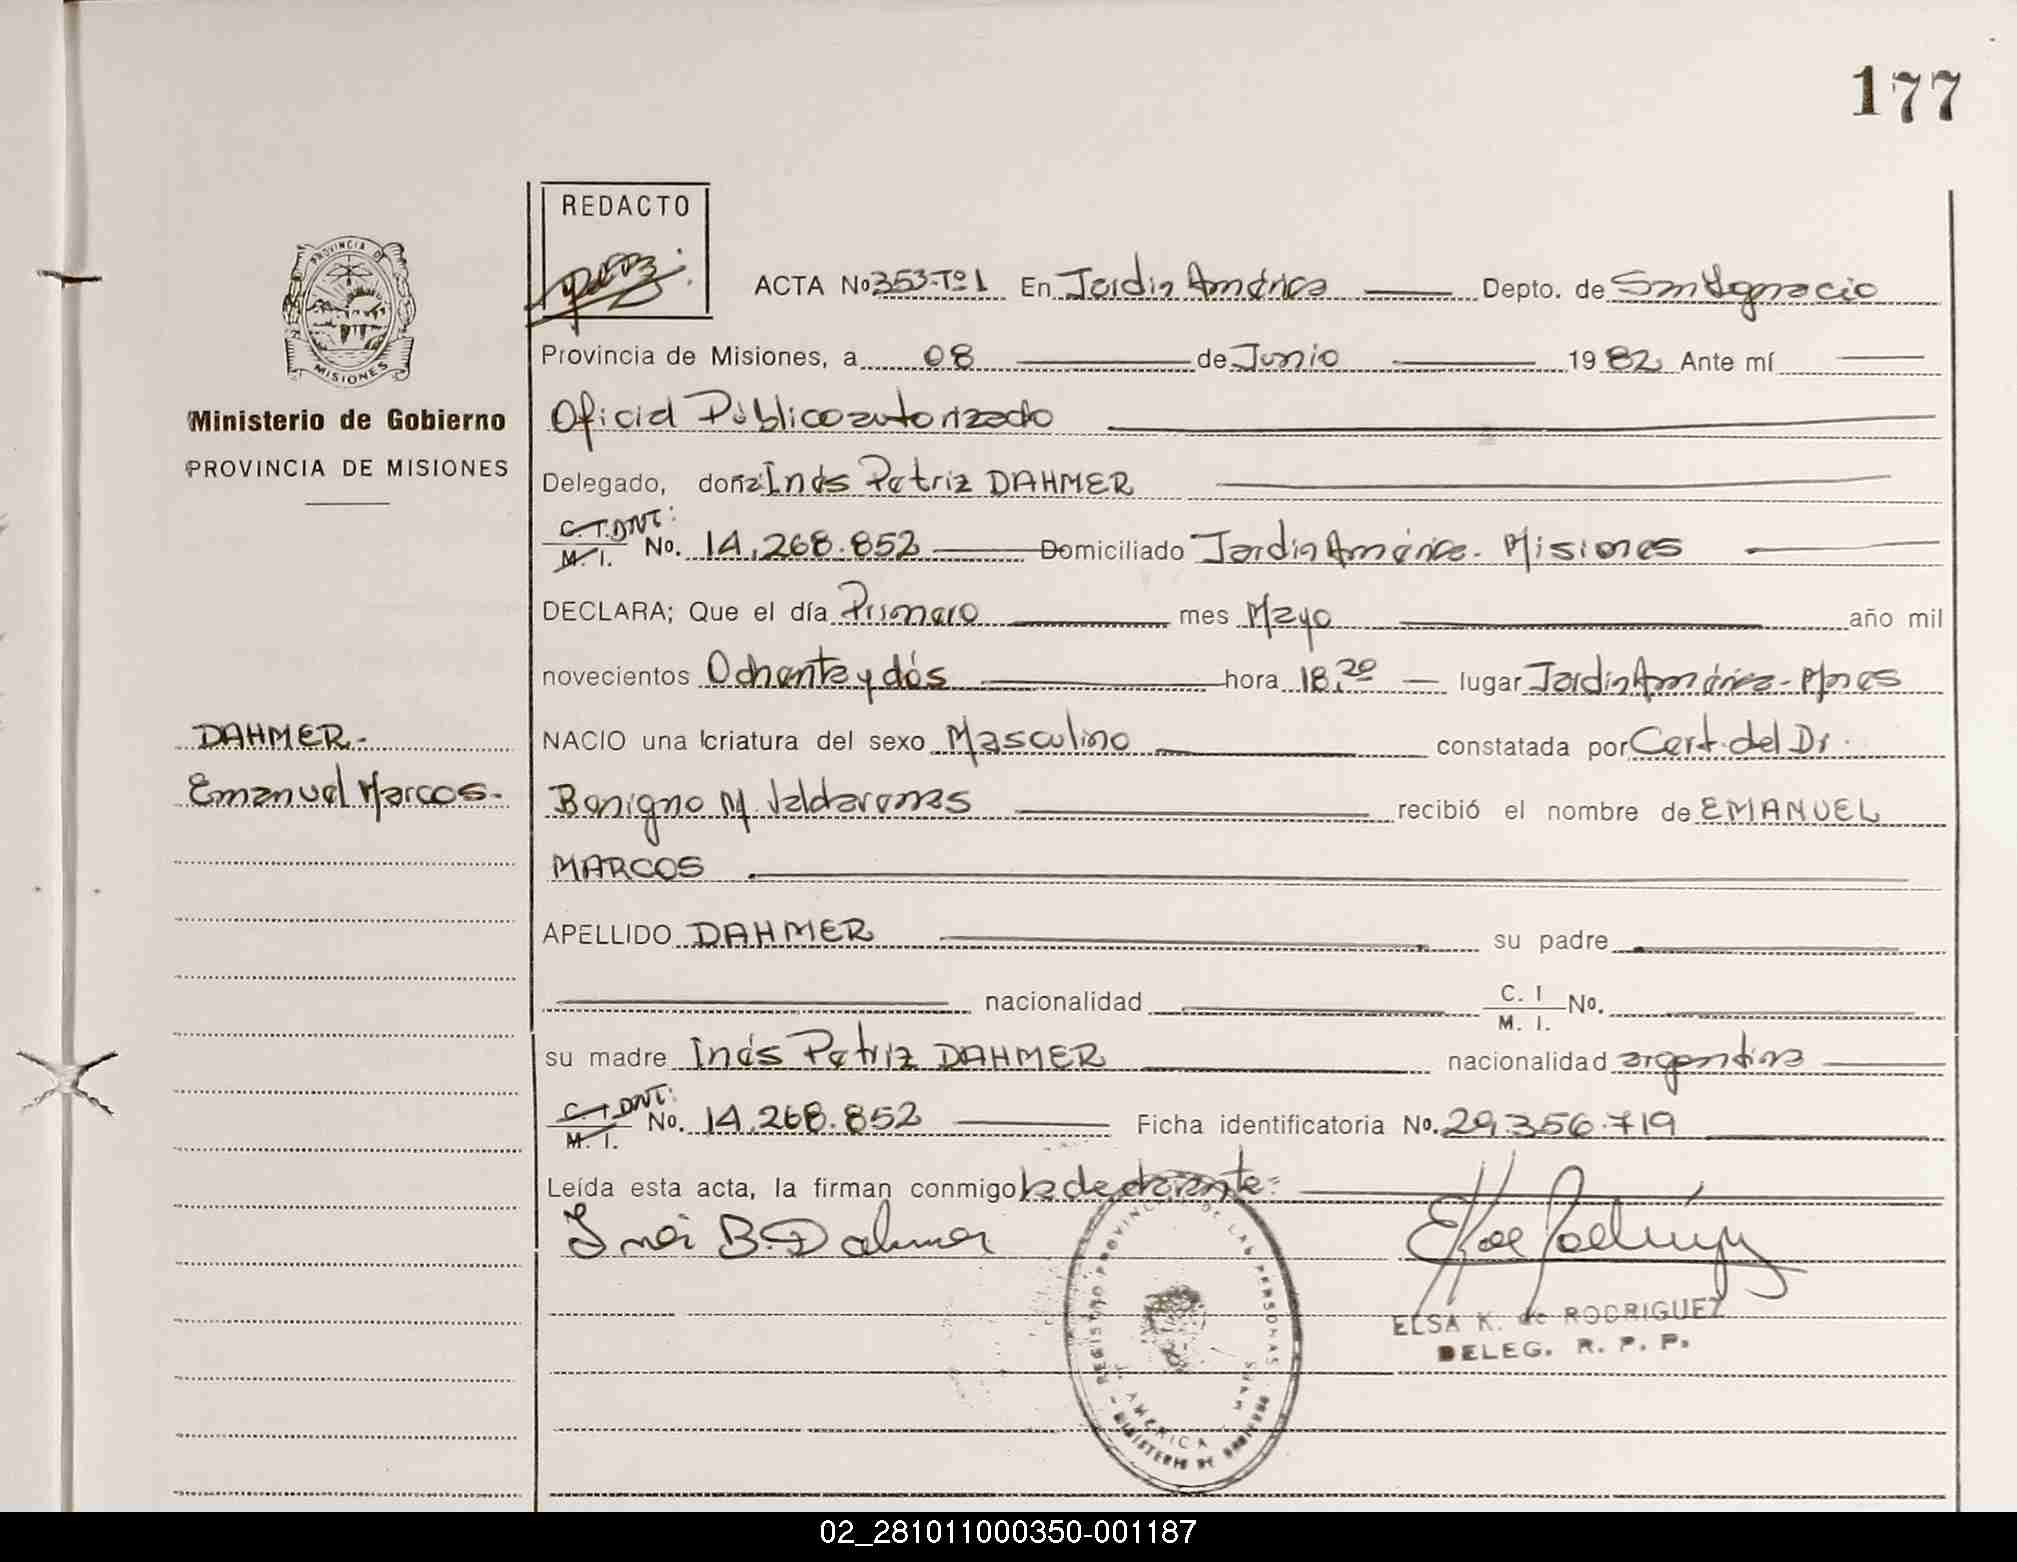 177
REDACTO
ACTA No 353-Tº1 En Jardin América Depto. de San Ignacio
Provincia de Misiones, a 08 de Junio 1982 Ante mí
Ministerio de Gobierno
PROVINCIA DE MISIONES
PROVINCIA DE
MISIONES
Oficial Público autorizado
Delegado, doña Inés Petriz DAHMER
C.I. DNI:
M. I. No. 14.268.852 Domiciliado Jardin América - Misiones
DECLARA; Que el día Primero mes Mayo año mil
novecientos Ochenta y dós hora 18,20 lugar Jardin América - Mnes
DAHMER.-
NACIO una criatura del sexo Masculino constatada por Cert. del Dr.
Emanuel Marcos.-
Benigno M. recibió el nombre de EMANUEL
MARCOS
APELLIDO DAHMER su padre
nacionalidad C. I
M. I. No.
su madre Inés Petriz DAHMER nacionalidad argentina
C.I. DNI:
M. I. No. 14.268.852 Ficha identificatoria No. 29.356.719
Leída esta acta, la firman conmigo la declarante:
Inés B. Dahmer
REGISTRO PROVINCIAL DE LAS PERSONAS
AMERICA
MINISTERIO DE GOBIERNO
ELSA K. de RODRIGUEZ
DELEG. R. P. P.
02_281011000350-001187